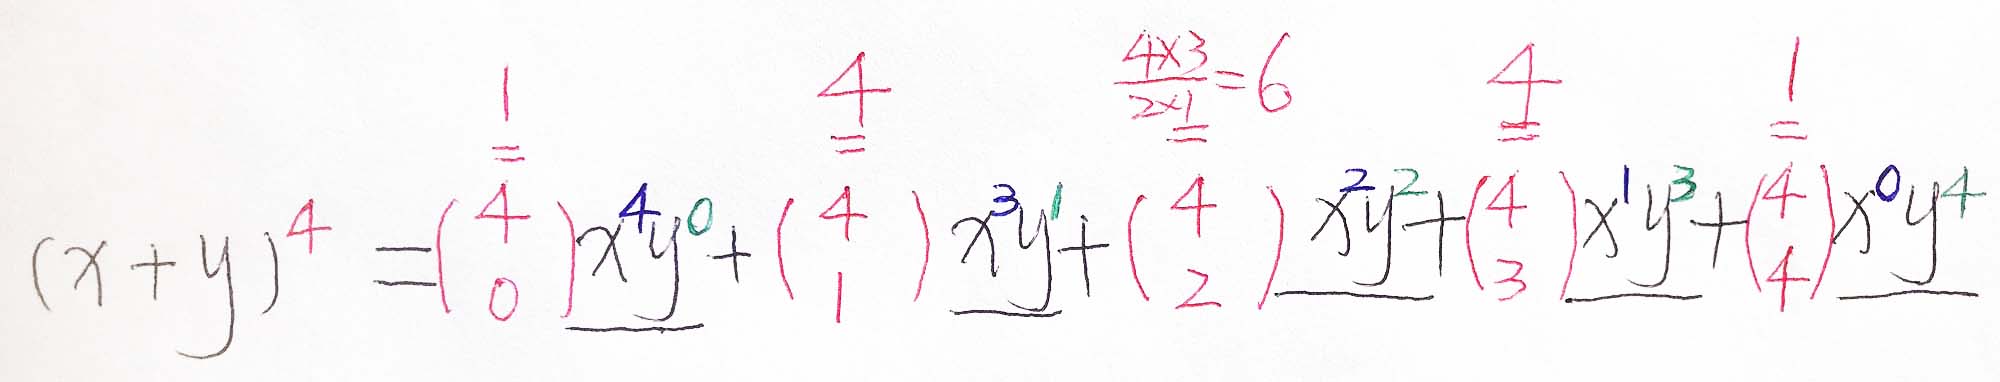 1 4 4×3/2×1=6 4 1
= = = = =
(x+y)⁴ = (4 0) x⁴y⁰ + (4 1) x³y¹ + (4 2) x²y² + (4 3) x¹y³ + (4 4) x⁰y⁴